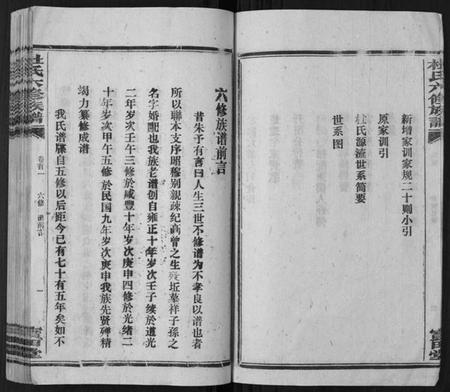 杜氏六修族譜
新增家训家规二十则小引
原家训引
杜氏源流世系简要
世系图
六修族谱前言
昔朱子有言曰人生三世不修谱为不孝良以谱也者
所以聯本支序昭穆别親疎纪高曾之生殁坵墓祥子孫之
名字婚配也我族老谱创自雍正十年岁次壬子续於道光
二年岁次壬午三修於咸豐十年岁次庚申四修於光緒二
十年岁次甲午五修於民国九年岁次庚申我族先賢殚精
竭力纂修成谱
我氏谱牒自五修以后距今已有七十有五年矣如不
杜氏六修族譜
卷首一
六修
谱前言
一